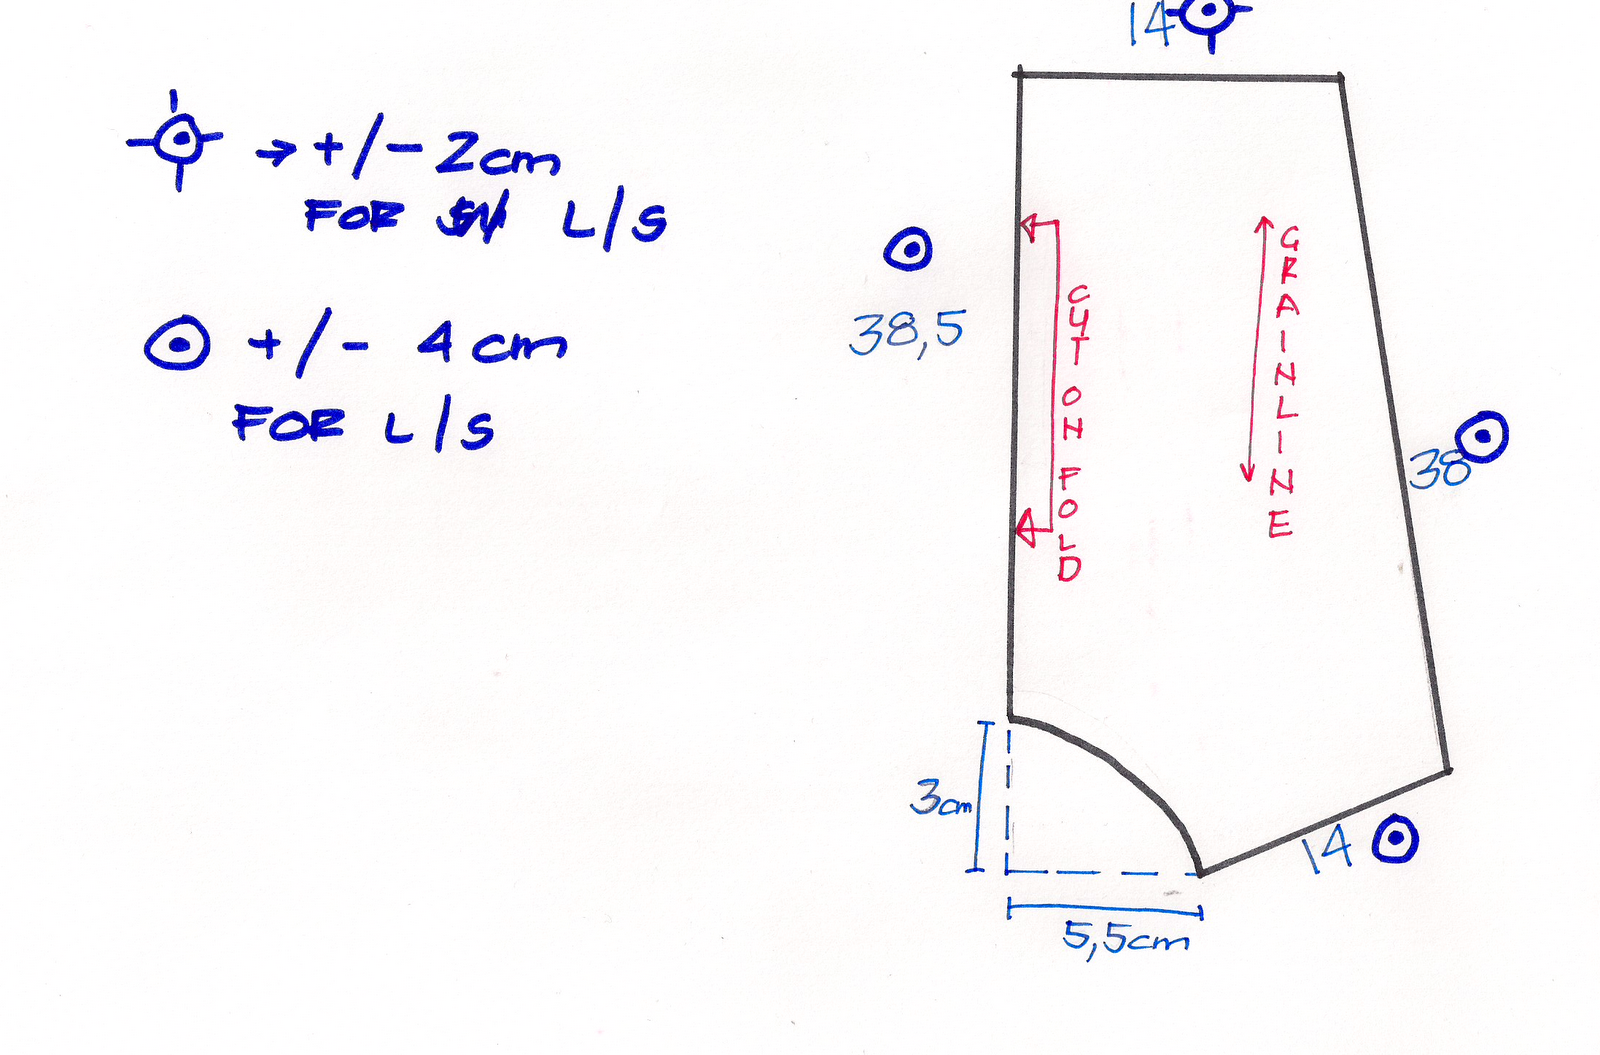 14
→ +/- 2cm
FOR L/S
+/- 4cm
FOR L/S
38,5
CUT ON FOLD
GRAINLINE
38
3cm
14
5,5cm